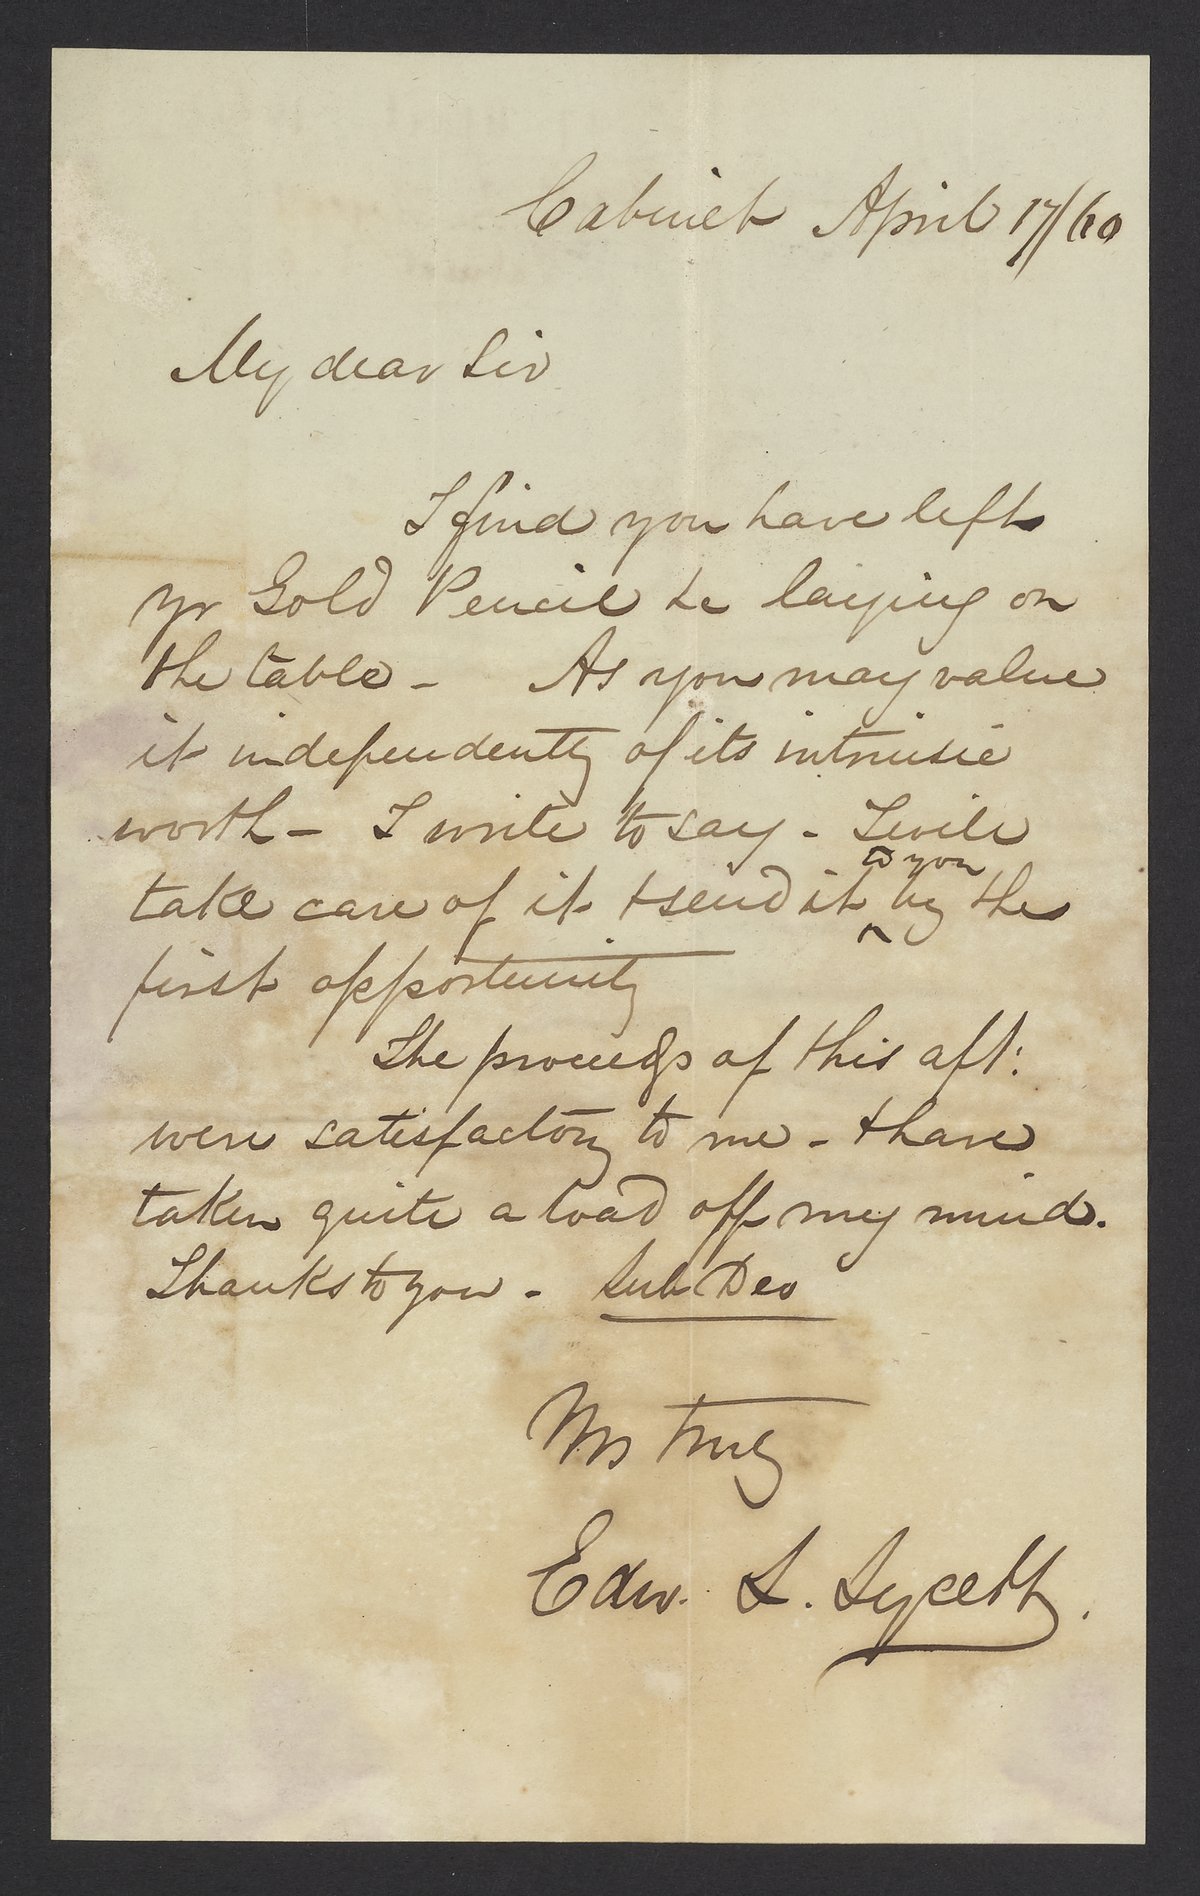 Cabinet April 17/60
My dear Sir
I find you have left
yr Gold Pencil &c laying on
the table - As you may value
it independently of its intrinsic
worth - I write to say - I will
take care of it & send it ^to you by the
first opportunity
The proceedgs of this aft:
were satisfactory to me - & have
taken quite a load off my mind.
Thanks to you - Sub Deo
Yrs truly
Edw. L. Lycett.